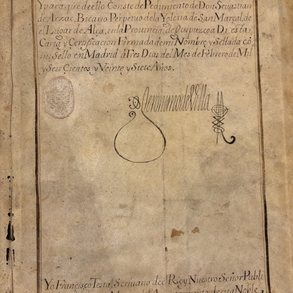 Y para que de ello Conste de Pedimento de Don Sebastian
de Arzac Bicario Perpetuo de la Yglesia de San Marçal de
el Lugar de Alza, en la Prouincia de Guipuzcoa Di esta
Carta y Certificacion Firmada de mi Nombre y Sellada co
mi Sello en Madrid à Tres Dias del Mes de Febrero de Mil
y Seis Cientos y Veinte y Siete Años.
Yo Francisco Testa Scriuano del Rey Nuestro Señor Publi